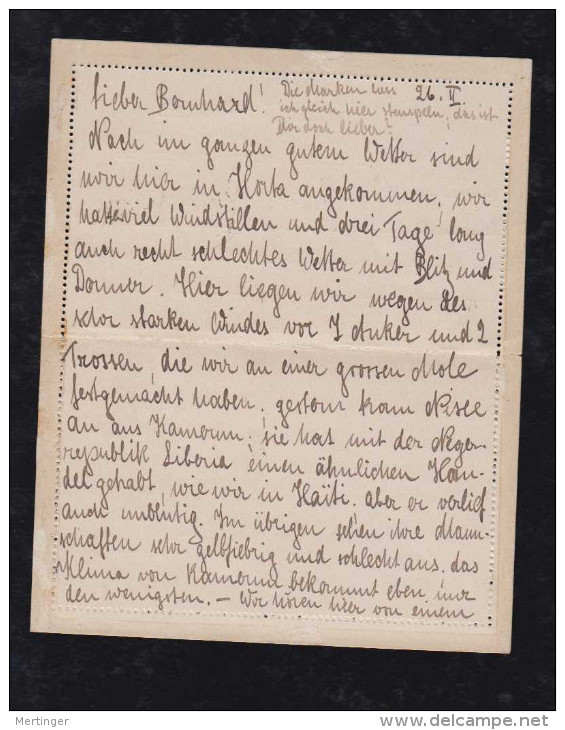 Lieber Bernhard!
Die Marken lass 26. II.
ich gleich hier stempeln, das ist
Dir doch lieber?
Nach im ganzen gutem Wetter sind
wir hier in Horta angekommen, wir
hatten viel Windstillen und drei Tage lang
auch recht schlechtes Wetter mit Blitz und
Donner. Hier liegen wir wegen des
sehr starken Windes vor 1 Anker und 2
Trossen, die wir an einer grossen Mole
festgemacht haben; gestern kam Nisee
an aus Kamerun; sie hat mit der Neger-
republik Liberia einen ähnlichen Han-
del gehabt, wie wir in Haïti, aber er verlief
auch unblutig. Im übrigen sehen ihre Mann-
schaften sehr gelbfiebrig und schlecht aus, das
Klima von Kamerun bekommt eben nur
den wenigsten. – Wir hören hier von einem
Mertinger
www.delcampe.net